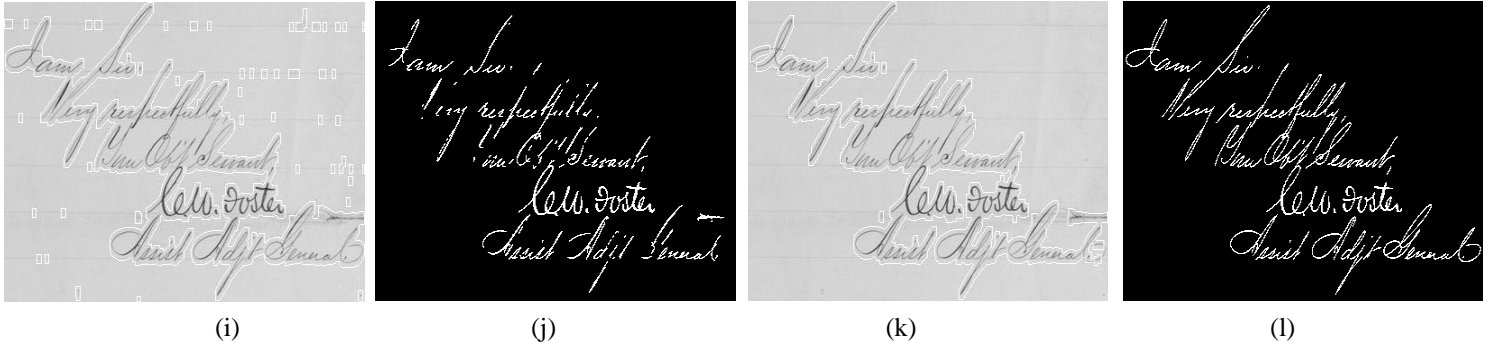 I am Sir.
Very respectfully,
Your Obt Servant,
C.W. Foster
Assist Adjt General
I am Sir.
Very respectfully,
Your Obt Servant,
C.W. Foster
Assist Adjt General
I am Sir.
Very respectfully,
Your Obt Servant,
C.W. Foster
Assist Adjt General
I am Sir.
Very respectfully,
Your Obt Servant,
C.W. Foster
Assist Adjt General
(i) (j) (k) (l)